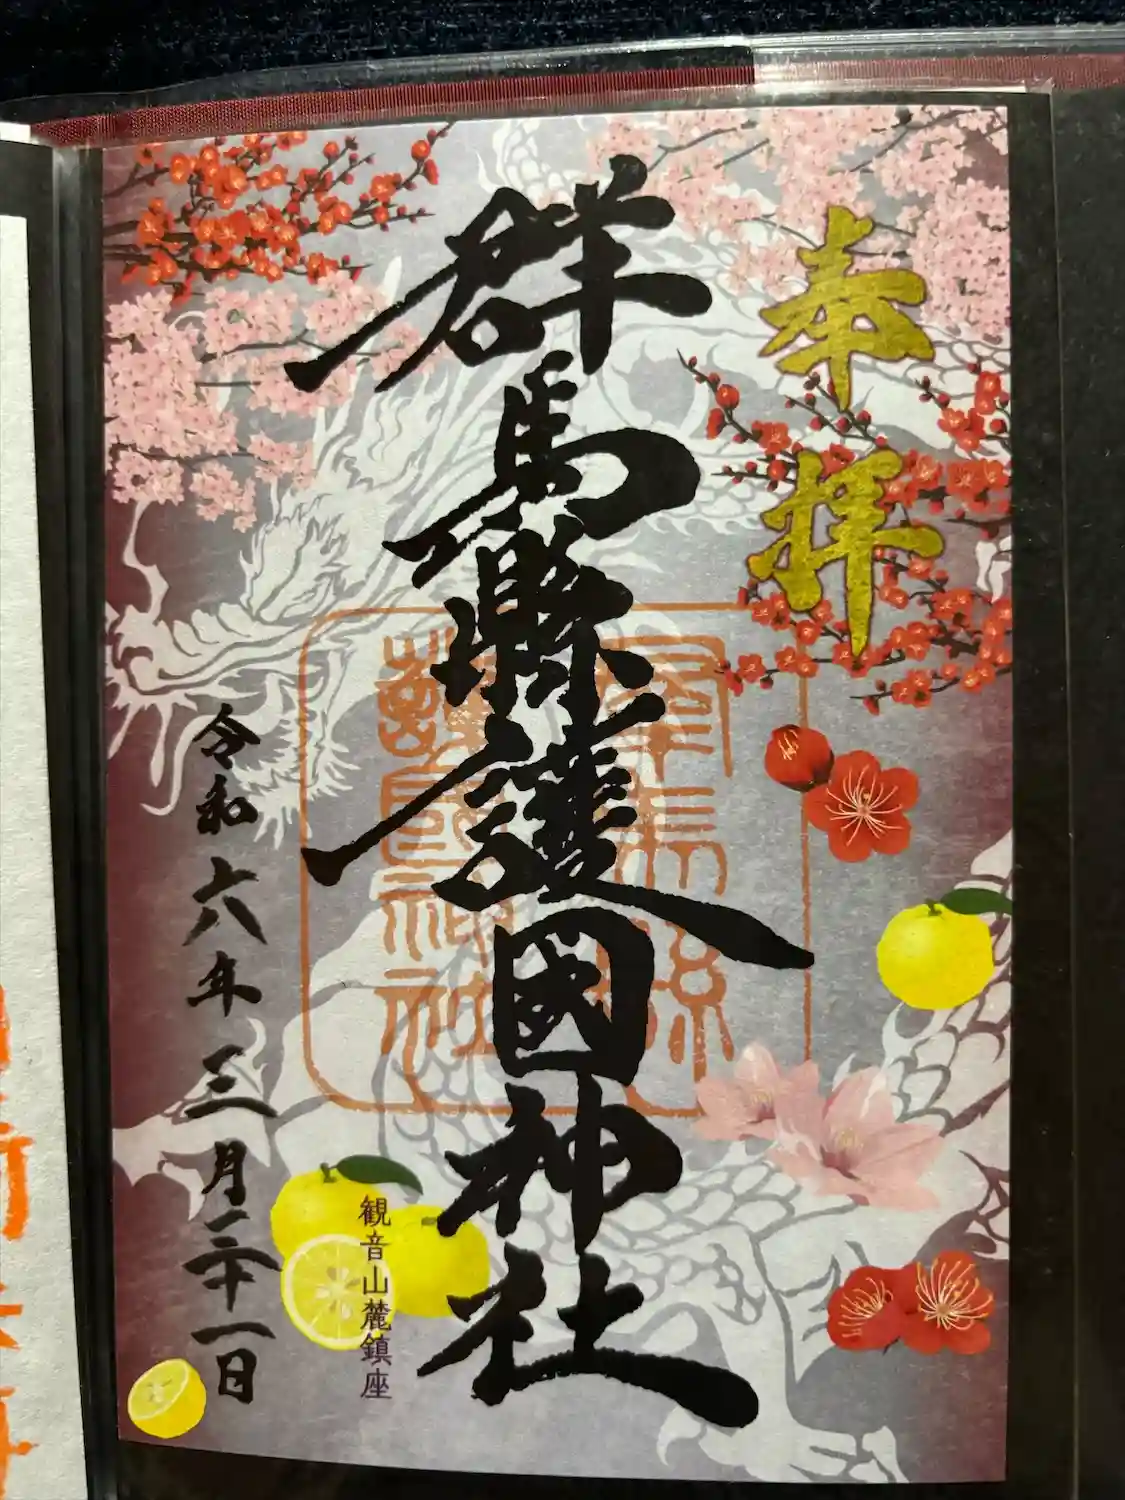 奉拝
群馬縣護國神社
群馬縣
護國神社
観音山麓鎮座
令和六年三月二十一日